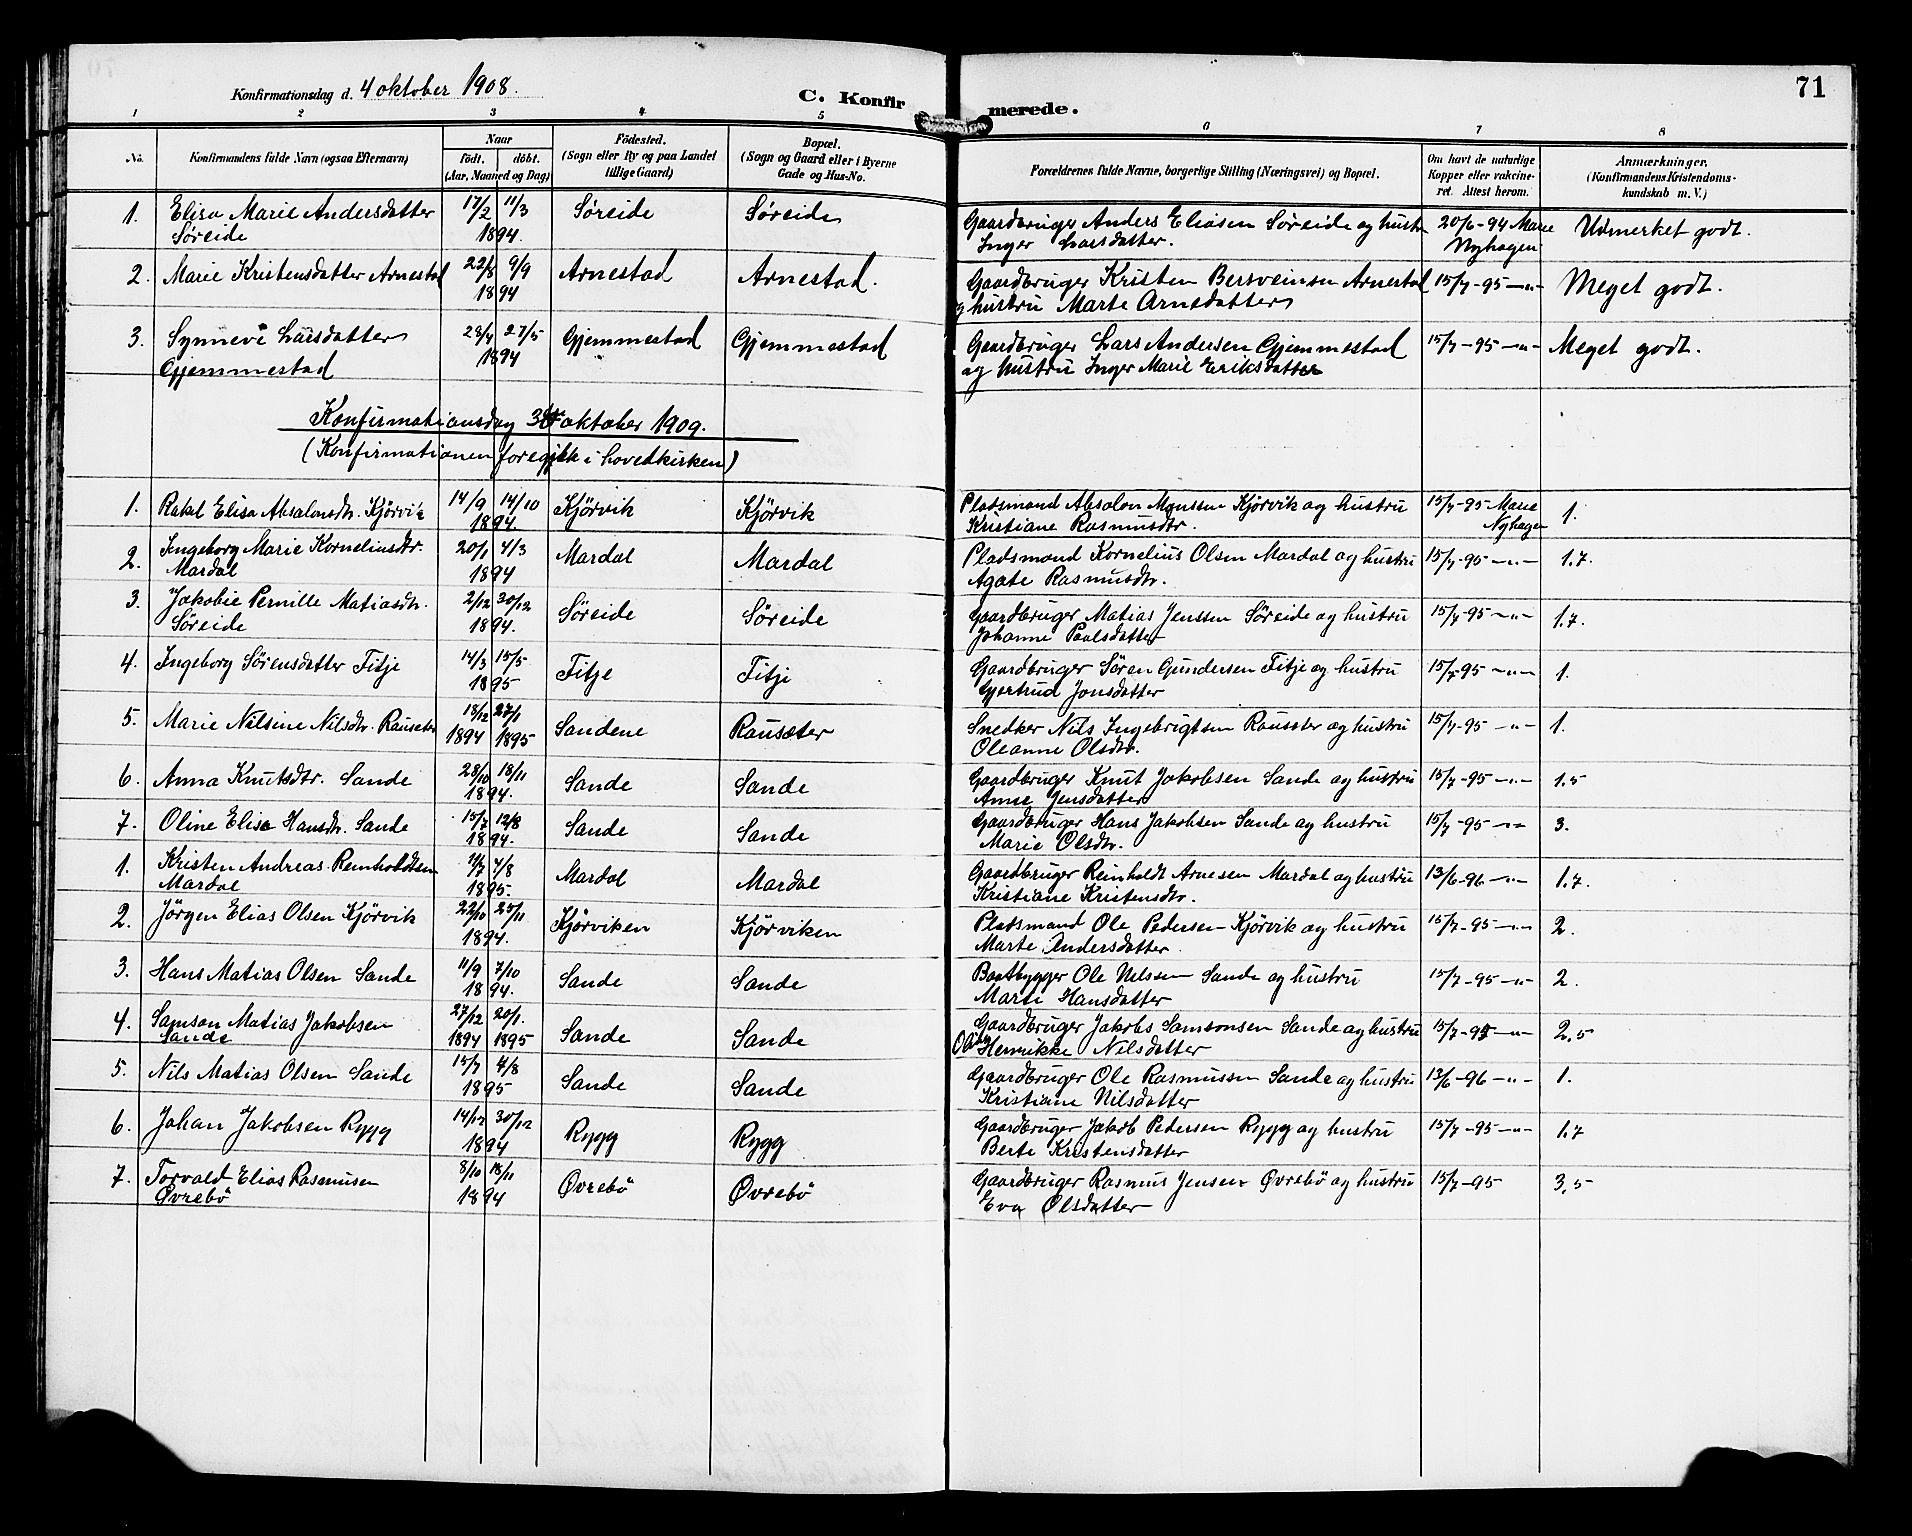 71
Konfirmationsdag d. 4 oktober 1908.
C. Konfirmerede.
1 2 3 4 5 6 7 8
No.
Konfirmandens fulde Navn (ogsaa Efternavn)
Naar
født. døbt.
(Aar, Maaned og Dag)
Födested.
(Sogn eller By og paa Landet
tillige Gaard)
Bopæl.
(Sogn og Gaard eller i Byerne
Gade og Hus-No.
Forældrenes fulde Navne, borgerlige Stilling (Næringsvei) og Bopæl.
Om havt de naturlige
Kopper eller vakcine-
ret. Attest herom.
Anmærkninger.
(Konfirmandens Kristendoms-
kundskab m. V.)
1. Elisa Marie Andersdatter 17/2 11/3 Søreide Søreide Gaardbruger Anders Eliasen Søreide og hustru 20/6-94 Marie Udmerket godt.
Søreide 1894. Inger Larsdatter. Nyhagen
2. Marie Kristensdatter Arnestad 22/8 9/9 Arnestad Arnestad. Gaardbruger Kristen Bersveinsen Arnestad 15/7-95 -"- Meget godt.
1894 og hustru Marte Arnesdatter
3. Synneve Larsdatter 28/4 27/5 Gjemmestad Gjemmestad Gaardbruger Lars Andersen Gjemmestad 15/7-95-"- Meget godt.
Gjemmestad 1894 og hustru Inger Marie Eriksdatter
Konfirmationsdag 3 oktober 1909.
(Konfirmationen foregik i hovedkirken)
1. Rakel Elisa Absalonsdtr. Kjörvik 14/9 14/10 Kjørvik Kjörvik Pladsmand Absalon Monssen Kjörvik og hustru 15/7-95 Marie 1.
1894. Kristiane Rasmusdtr. Nyhagen
2. Ingeborg Marie Korneliusdtr. 20/1 4/3 Mardal Mardal Pladsmand Kornelius Olsen Mardal og hustru 15/7-95 -"- 1.7.
Mardal 1894 Agate Rasmusdtr.
3. Jakobie Pernille Matiasdtr. 2/12 30/12 Søreide Søreide Gaardbruger Matias Jenssen Søreide og hustru 15/7-95 -"- 1.7.
Søreide 1894. Johanne Paulsdatter
4. Ingeborg Sörensdatter Fitje 14/3 15/5 Fitje Fitje Gaardbruger Sören Gundersen Fitje og hustru 15/7-95 -"- 1.
1895 Gjertrud Jonsdatter
5. Marie Nilsine Nilsdtr. Rauseter 18/12 27/1 Sandene Rauseter Snedker Nils Ingebrigtsen Rauseter og hustru 15/7-95 -"- 1.
1894 1895 Oleanne Olsdtr.
6. Anna Knutsdtr. Sande 28/10 18/11 Sande Sande Gaardbruger Knut Jakobsen Sande og hustru 15/7-95 -"- 1.5
1894. Anne Jensdatter
7. Oline Elise Hansdtr. Sande 15/7 12/8 Sande Sande Gaardbruger Hans Jakobsen Sande og hustru 15/7-95 -"- 3.
1894. Marie Olsdtr.
1. Kristen Andreas Reinholdtsen 4/8 Mardal Mardal Gaardbruger Reinholdt Arnesen Mardal og hustru 13/6-96 -"- 1.7.
Mardal 1895. Kristiane Kristensdtr.
2. Jörgen Elias Olsen Kjörvik 22/10 25/11 Kjørviken Kjörviken Pladsmand Ole Pedersen Kjörvik og hustru 15/7-95 -"- 2.
1894. Marte Andersdatter.
3. Hans Matias Olsen Sande 11/9 7/10 Sande Sande Baatbygger Ole Nilssen Sande og hustru 15/7-95 -"- 2.
1894. Marte Hansdatter
4. Samson Matias Jakobsen 27/12 20/1. Sande Sande Gaardbruger Jakob Samsonsen Sande og hustru 15/7-95 -"- 2,5
Sande 1894 1895 Henrikke Nilsdatter
5. Nils Matias Olsen Sande 15/7 4/8 Sande Sande Gaardbruger Ole Rasmussen Sande og hustru 13/6-96 -"- 1.
1895 Kristiane Nilsdatter
6. Johan Jakobsen Rygg 14/12 30/12 Rygg Rygg Gaardbruger Jakob Pedersen Rygg og hustru 15/7-95 -"- 1.7
1894 Berte Kristensdatter
7. Torvald Elias Rasmusen 8/10 18/11 Øvrebö Øvrebö Gaardbruger Rasmus Jensen Øvrebö og hustru 15/7-95 3,5
Øvrebö 1894 Eva Olsdatter